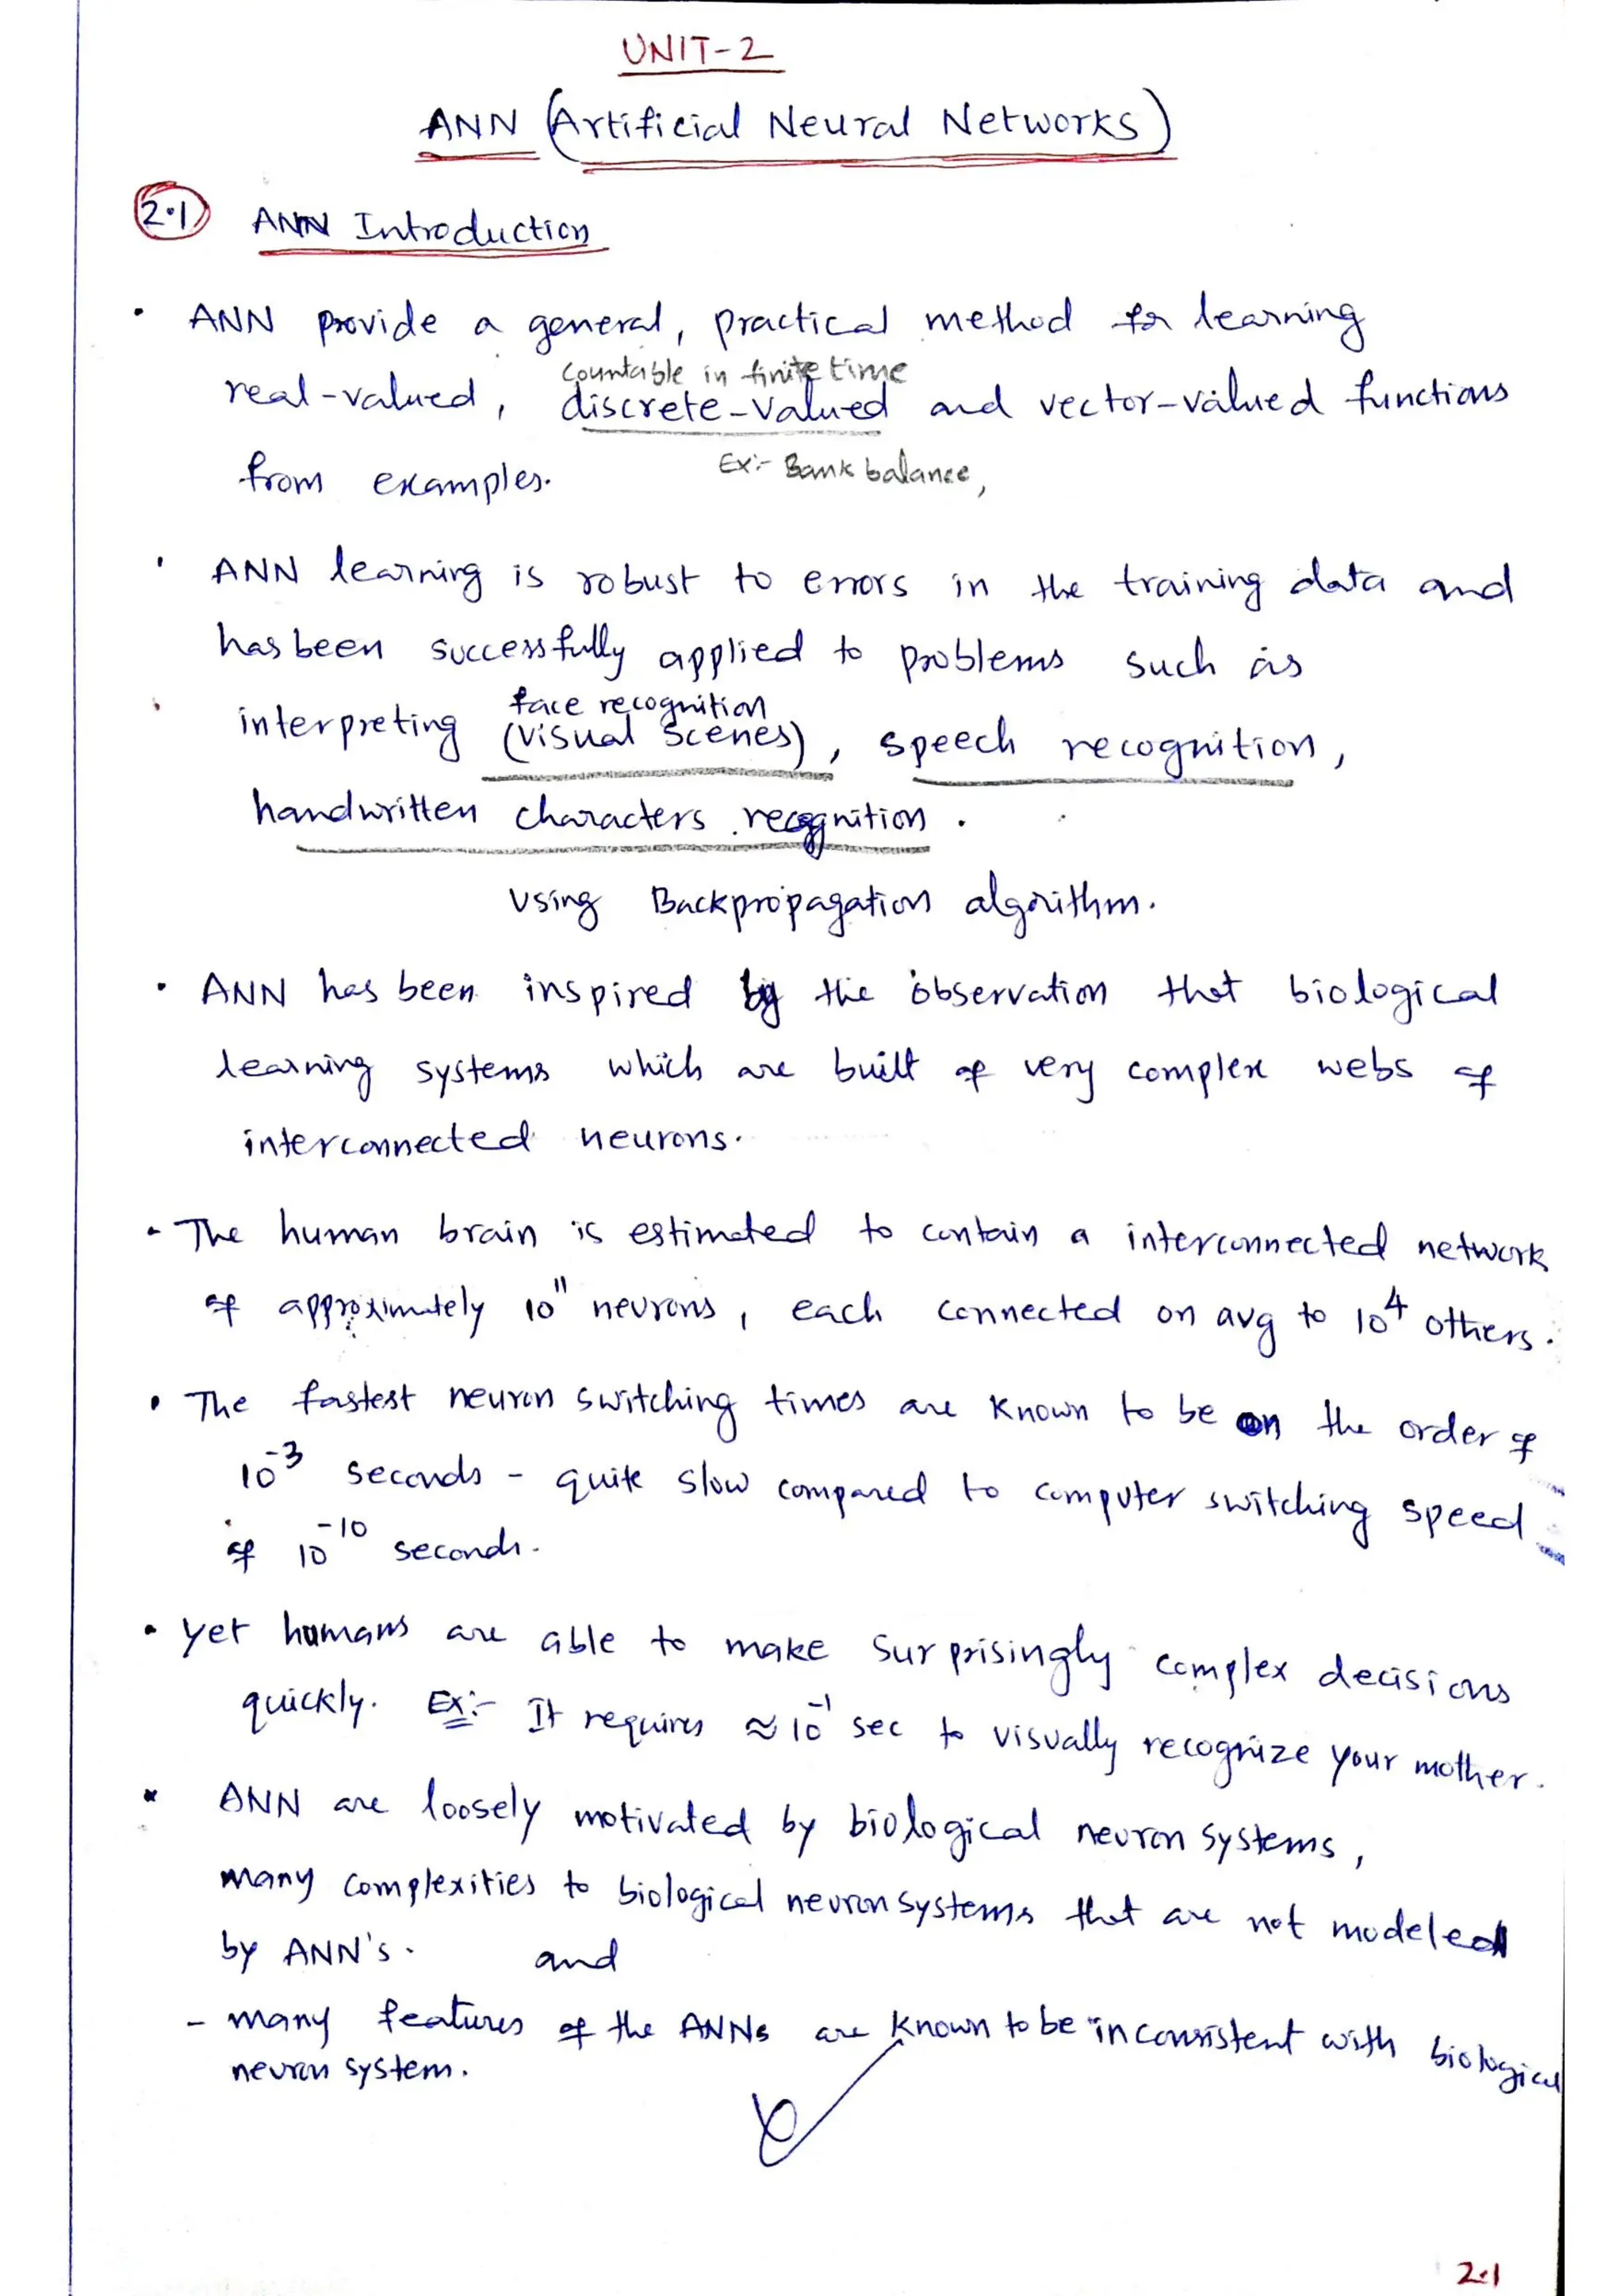 UNIT-2
ANN (Artificial Neural Networks)
2.1 ANN Introduction
• ANN provide a general, practical method for learning
countable in finite time
real-valued, discrete-valued and vector-valued functions
Ex:- Bank balance,
from examples.
• ANN learning is robust to errors in the training data and
has been successfully applied to problems such as
face recognition
interpreting (visual scenes), speech recognition,
handwritten characters recognition.
Using Backpropagation algorithm.
• ANN has been inspired by the observation that biological
learning systems which are built of very complex webs of
interconnected neurons.
• The human brain is estimated to contain a interconnected network
of approximately 10¹¹ neurons, each connected on avg to 10⁴ others.
• The fastest neuron switching times are known to be on the order of
10⁻³ seconds - quite slow compared to computer switching speed
of 10⁻¹⁰ seconds.
• Yet humans are able to make surprisingly complex decisions
quickly. Ex:- It requires ≈ 10⁻¹ sec to visually recognize your mother.
* ANN are loosely motivated by biological neuron systems,
many complexities to biological neuron systems that are not modeled
by ANN's. and
- many features of the ANNs are known to be inconsistent with biological
neuron system.
2.1